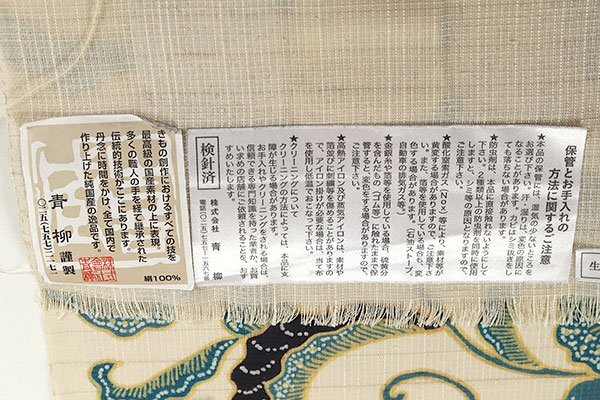 きもの創作におけるすべての技を
最高級の国産素材の上に表現。
多くの職人の手を経て継承された
伝統的技術がここにあります。
丹念に時間をかけ、全て国内で
作り上げた純国産の逸品です。
青柳 謹製
絹100%
保管とお手入れの
方法に関するご注意
★本品の保管には、湿気の少ないところを
お選び下さい。汗・湿りは、変色の原因に
なることがあります。カビはシミ抜きをし
ても落ちない場合があります。
★防虫剤は、本品に直接触れないようにして
下さい。2種類以上の防虫剤を同時に使用
しますと、シミ等の原因となりますので、
ご注意下さい。
★酸化窒素ガス(Nox)等により、素材等が
黄変する場合がありますので、ご注意下さ
い。また、箔等を使用している場合も、変
色する場合があります。(石油ストーブ、
自動車の排気ガス等)
★金銀糸や箔等を使用している場合、硫黄分
を含んだもの(ゴム等)に触れたままで保
管すると、変色する場合がありますので、
ご注意下さい。
★高熱アイロン及び蒸気アイロンは、素材や
箔並びに刺繍等を傷めることがありますの
で、アイロン掛けが必要な場合は、当て布
を使用し低温で行なって下さい。
★クリーニングについて
クリーニングの方法によっては、本品に支
障が生じる場合があります。
お手入れやクリーニングをされる場合は、
信頼できる技術と知識をもった業者か、お買
い求めの店舗にご依頼されることを、おす
すめいたします。
株式会社 青柳
検針済
生